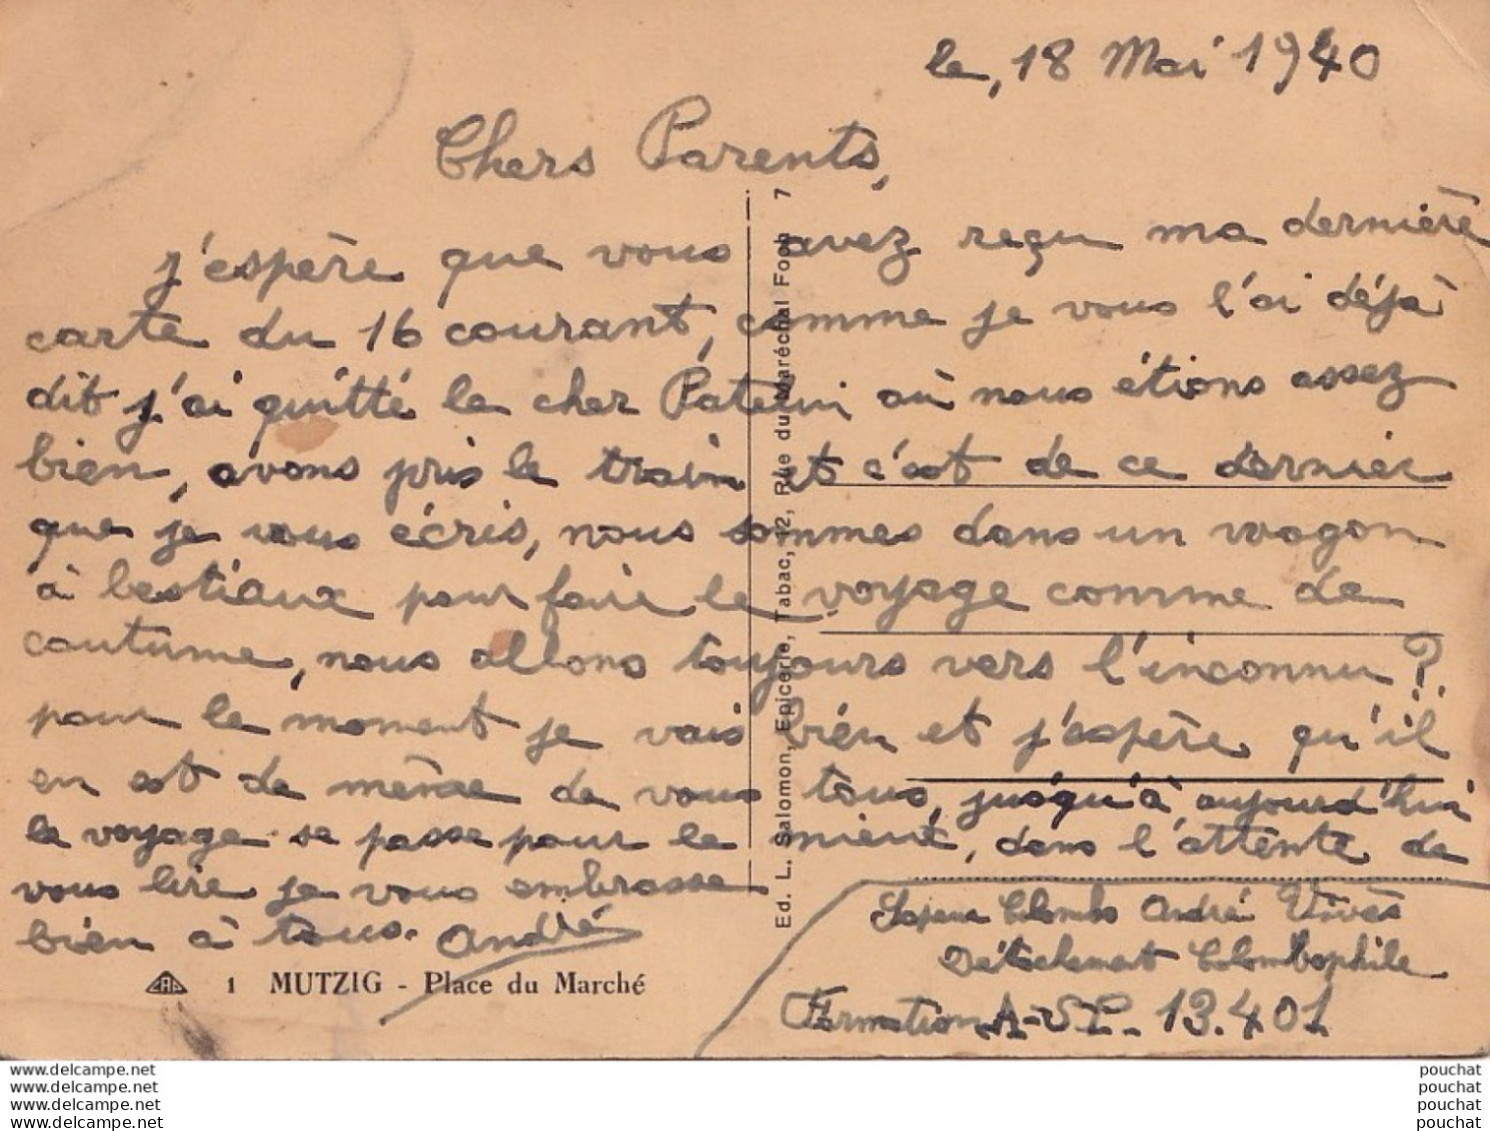 le, 18 Mai 1940
Chers Parents,
j'espère que vous avez reçu ma dernière
carte du 16 courant, comme je vous l'ai déjà
dit j'ai quitté le cher Patelin où nous étions assez
bien, avons pris le train et c'est de ce dernier
que je vous écris, nous sommes dans un wagon
à bestiaux pour faire le voyage comme de
coutume, nous allons toujours vers l'inconnu ?..
pour le moment je vais bien et j'espère qu'il
en est de même de vous tous, jusqu'à aujourd'hui
le voyage se passe pour le mieux, dans l'attente de
vous lire je vous embrasse
bien à tous. André
Sapeur Colombo André Vivès
Détachement Colombophile
Formation A-SL- 13.401
CAP 1 MUTZIG - Place du Marché
Ed. L. Salomon, Epicerie, Tabac, 12, Rue du Maréchal Foch 7
www.delcampe.net
www.delcampe.net
www.delcampe.net
www.delcampe.net
pouchat
pouchat
pouchat
pouchat